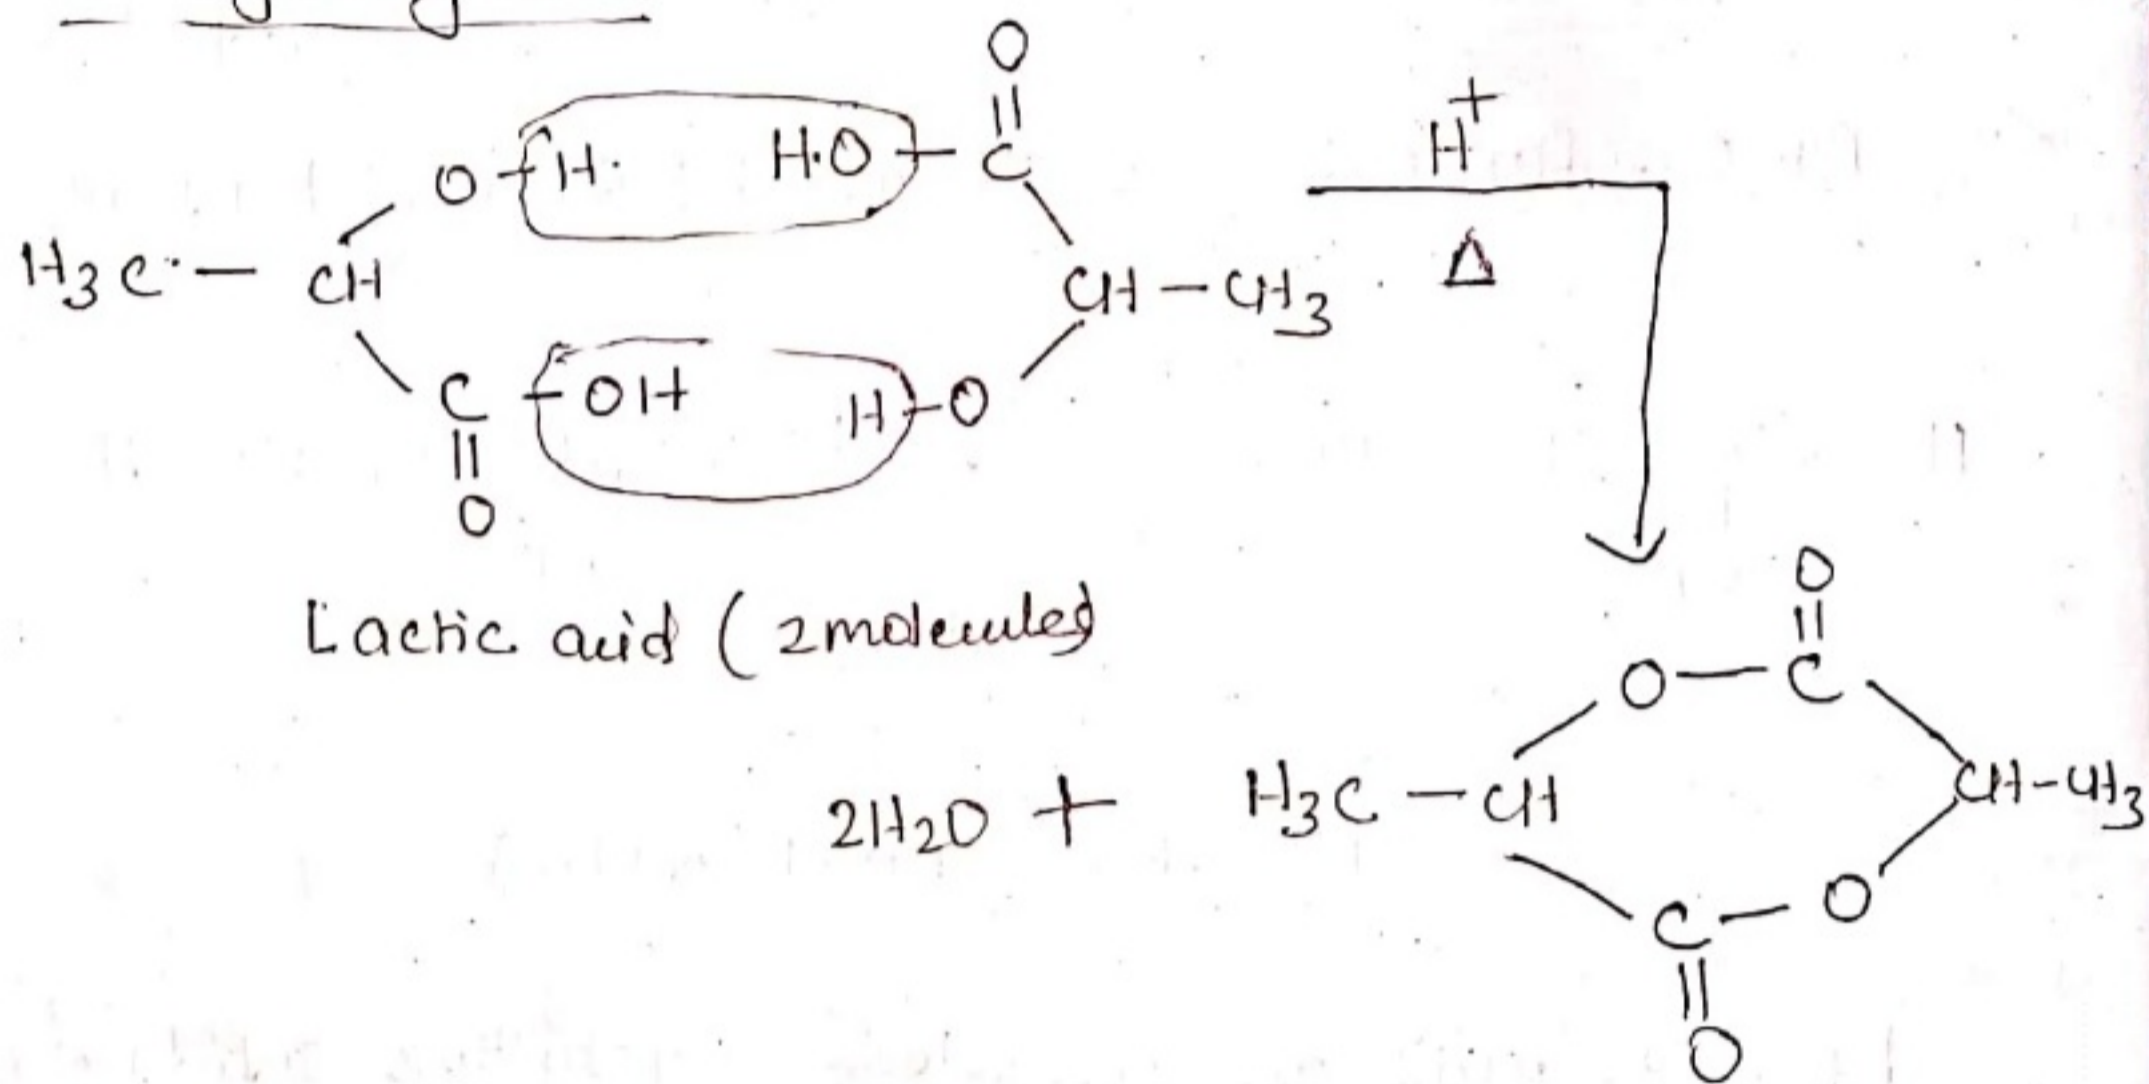 O
O H. H.O C H⁺
H3C - CH CH - CH3 Δ
C OH H O
O
Lactic acid (2 molecules)
O
O - C
2H2O + H3C - CH CH-CH3
C - O
O